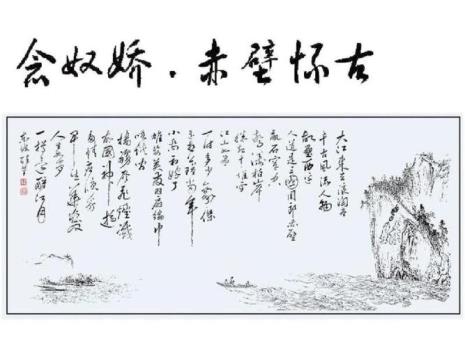 念奴娇·赤壁怀古
大江东去浪淘尽
千古风流人物
故垒西边
人道是三国周郎赤壁
乱石穿空
惊涛拍岸
卷起千堆雪
江山如画
一时多少豪杰
遥想公瑾当年
小乔初嫁了
雄姿英发羽扇纶巾
谈笑间
樯橹灰飞烟灭
故国神游
多情应笑我
早生华发
人生如梦
一樽还酹江月